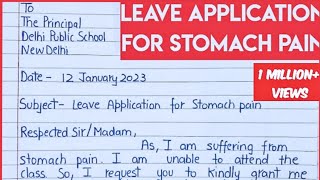 To
The Principal
Delhi Public School
New Delhi
LEAVE APPLICATION
FOR STOMACH PAIN
1 MILLION+
VIEWS
Date - 12 January 2023
Subject - Leave Application for Stomach pain
Respected Sir/Madam,
As, I am suffering from
stomach pain. I am unable to attend the
class. So, I request you to kindly grant me